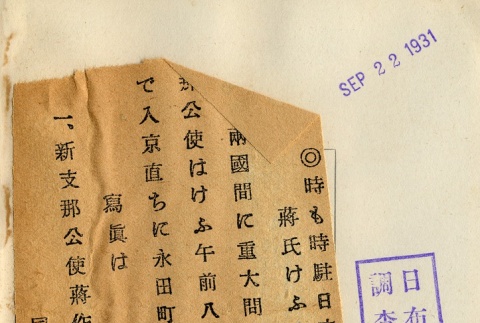 SEP 22 1931
◎時も時駐日
蔣氏けふ
兩國間に重大問
那公使はけふ午前八
で入京直ちに永田町
寫眞は
一、新支那公使蔣作
日布
調査